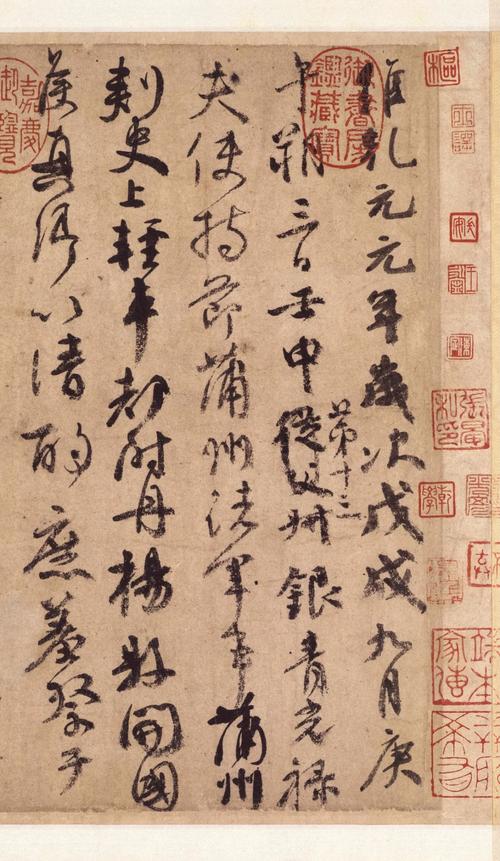 維乾元元年歲次戊戌九月庚
午朔三日壬申第十三從父叔銀青光祿
夫使持節蒲州諸軍事蒲州
刺史上輕車都尉丹楊縣開國
侯真卿以清酌庶羞祭于
御書房鑑藏寶
嘉慶御覽
樞